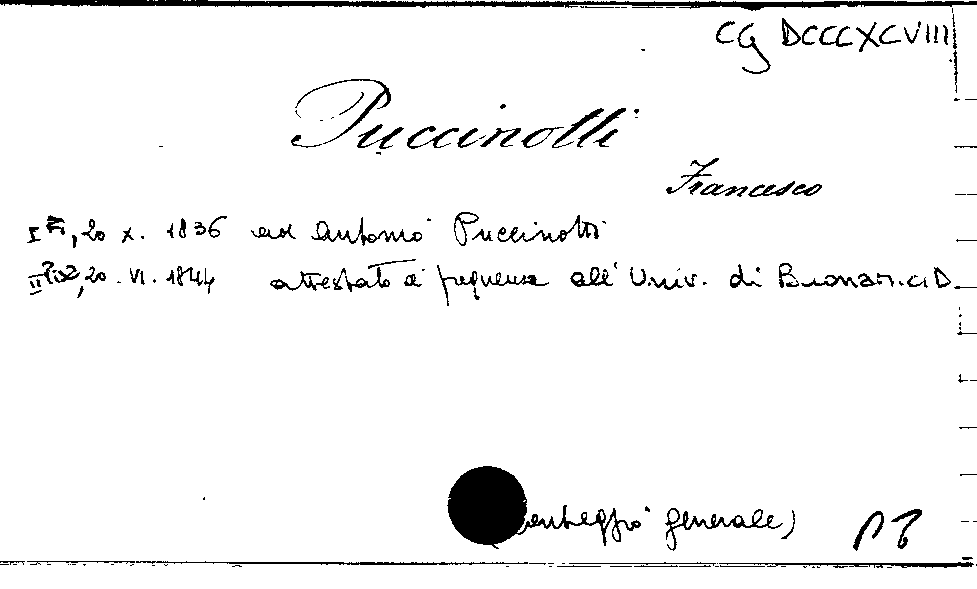 CG DCCCXCVIII
Puccinotti
Francesco
I Fi, 20 X. 1836 ad Antonio Puccinotti
II Pisa, 20. VI. 1844 attestato di frequenza all' Univ. di D.
generale)